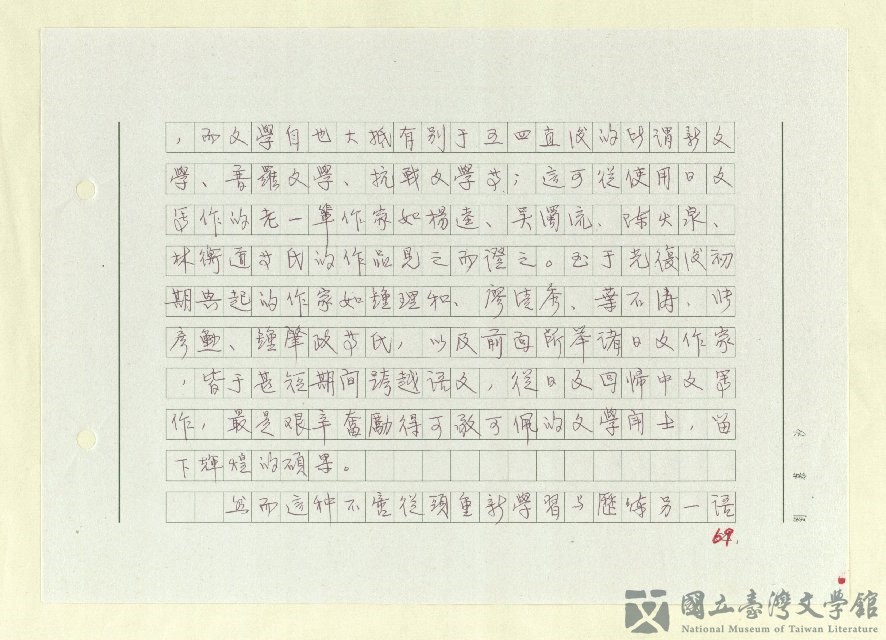 ，而文學自也大抵有別于五四直後的所謂新文
學、普羅文學、抗戰文學等；這可從使用日文
寫作的老一輩作家如楊逵、吳濁流、陳火泉、
林衡道等氏的作品見之而證之。至于光復後初
期興起的作家如鍾理和、廖清秀、葉石濤、許
彥勳、鍾肇政等氏，以及前面所举諸日文作家
，皆于甚短期间跨越语文，從日文回帰中文軍
作，最是艰辛奮勵得可敬可佩的文學闘士，留
下輝煌的碩果。
然而這种不啻從頭重新學習与歷练另一語
69.
國立臺灣文學館
National Museum of Taiwan Literature